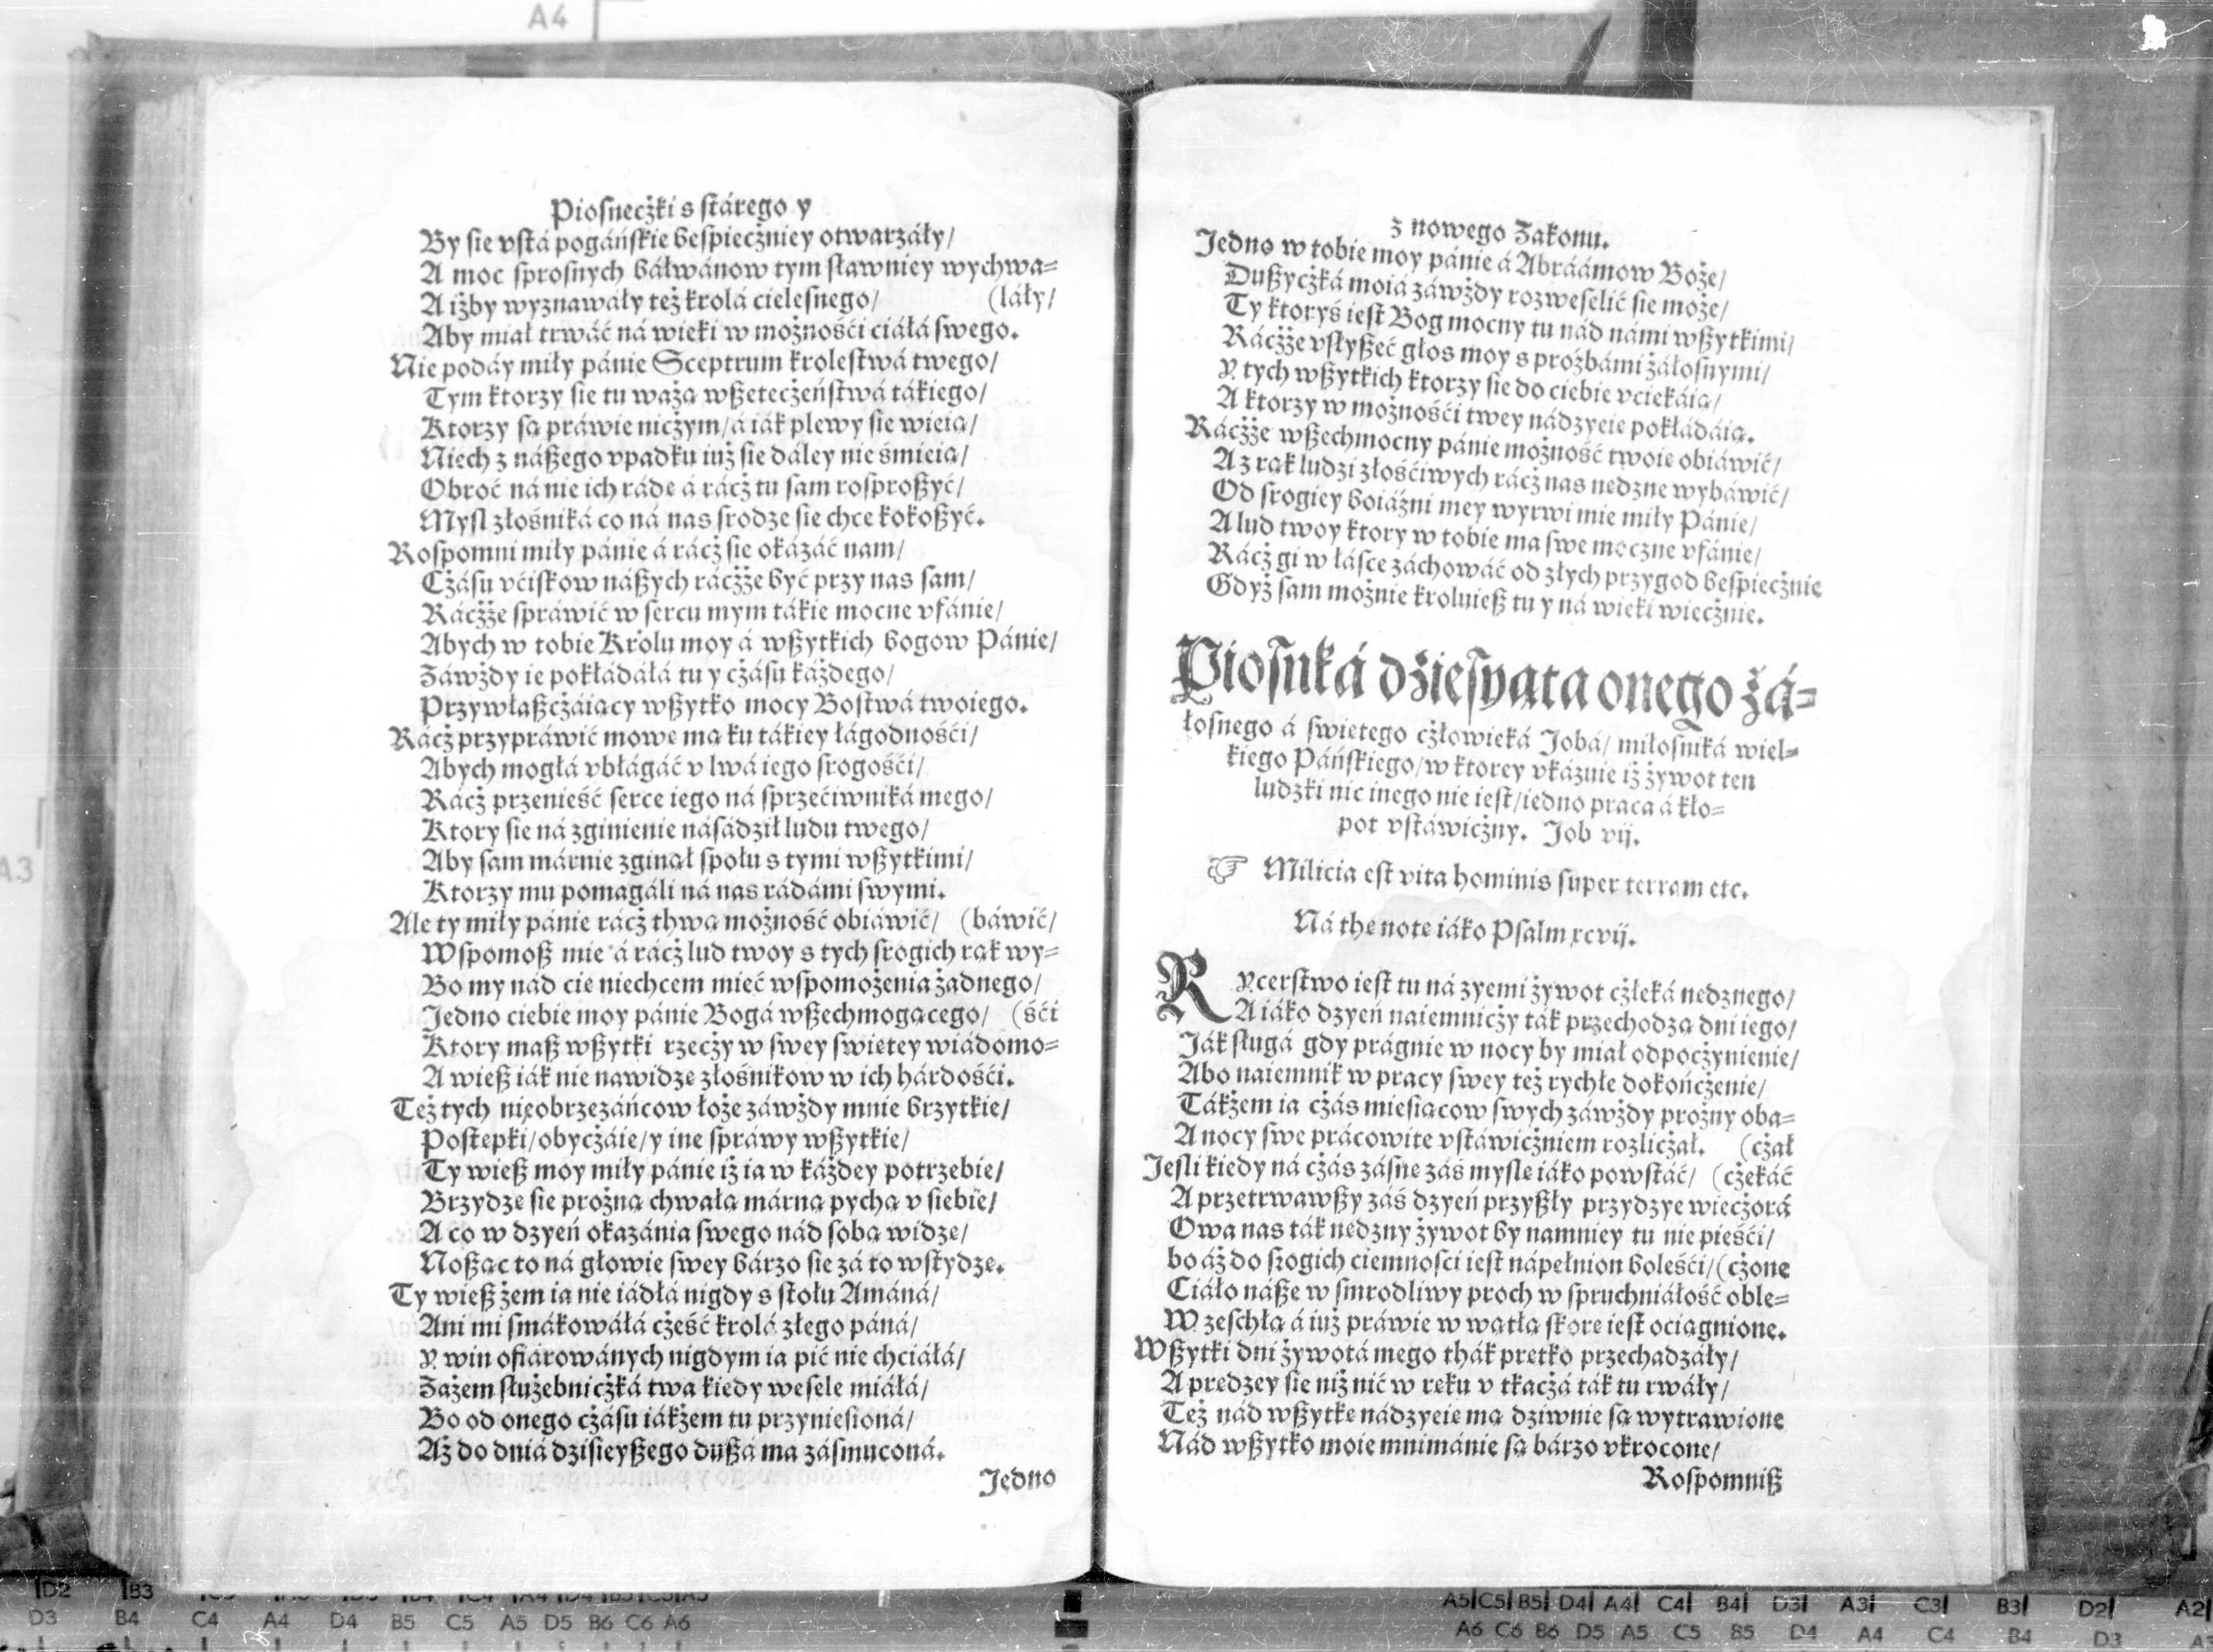 Piosneczki s stárego y
By sie vstá pogáńskie bespieczniey otwarzáły/
A moc sprosnych báłwánow tym sławniey wychwa=
A iżby wyznawáły też krolá cielesnego/ (láły/
Aby miał trwáć ná wieki w możnośći ciáłá swego.
Nie podáy miły pánie Sceptrum krolestwá twego/
Tym ktorzy sie tu ważą wßeteczeństwá tákiego/
Ktorzy są práwie niczym/ á iák plewy sie wieią/
Niech z náßego vpadku iuż sie dáley nie śmieią/
Obroć ná nie ich ráde á rácż tu sam rosproßyć/
Mysl złośniká co ná nas srodze sie chce kokoßyć.
Rospomni miły pánie á rácż sie okázáć nam/
Cżásu vćiskow náßych rácżże być przy nas sam/
Rácżże spráwić w sercu mym tákie mocne vfánie/
Abych w tobie Krolu moy á wßytkich bogow Pánie/
Záwżdy ie pokłádáłá tu y cżásu káżdego/
Przywłaßcżáiący wßytko mocy Bostwá twoiego.
Rácż przypráwić mowe mą ku tákiey łágodnośći/
Abych mogłá vbłágáć v lwá iego srogośći/
Rácż przenieść serce iego ná sprzećiwniká mego/
Ktory sie ná zginienie násádził ludu twego/
Aby sam márnie zginął społu s tymi wßytkimi/
Ktorzy mu pomagáli ná nas rádámi swymi.
Ale ty miły pánie rácż thwą możność obiáwić/ (báwić/
Wspomoß mie á rácż lud twoy s tych srogich rąk wy=
Bo my nád cie niechcem mieć wspomożenia żadnego/
Jedno ciebie moy pánie Bogá wßechmogącego/ (śći
Ktory maß wßytki rzecży w swey swietey wiádomo=
A wieß iák nie nawidze złośnikow w ich hárdośći.
Też tych nieobrzezáńcow łoże záwżdy mnie brzytkie/
Postepki/ obycżáie/ y ine spráwy wßytkie/
Ty wieß moy miły pánie iż ia w káżdey potrzebie/
Brzydze sie prożną chwałą márną pychą v siebie/
A co w dzyeń okazánia swego nád sobą widze/
Noßąc to ná głowie swey bárzo sie zá to wstydze.
Ty wieß żem ia nie iádłá nigdy s stołu Amáná/
Ani mi smákowáłá cżeść krolá złego páná/
Y win ofiárowánych nigdym ia pić nie chciáłá/
Zażem służebnicżká twa kiedy wesele miáłá/
Bo od onego cżásu iákżem tu przyniesioná/
Aż do dniá dzisieyßego dußá ma zásmuconá.
Jedno
z nowego Zakonu.
Jedno w tobie moy pánie á Abráámow Boże/
Dußycżká moiá záwżdy rozweselić sie może/
Ty ktoryś iest Bog mocny tu nád námi wßytkimi/
Rácżże vsłyßeć głos moy s prożbámi żáłosnymi/
Y tych wßytkich ktorzy sie do ciebie vciekáią/
A ktorzy w możnośći twey nádzyeie pokłádáią.
Rácżże wßechmocny pánie możność twoie obiáwić/
A z rąk ludzi złośćiwych rácż nas nedzne wybáwić/
Od srogiey boiáźni mey wyrwi mie miły Pánie/
A lud twoy ktory w tobie ma swe moczne vfánie/
Rácż gi w łásce záchowáć od złych przygod bespiecżnie
Gdyż sam możnie kroluieß tu y ná wieki wiecżnie.
Piosnká dziesyąta onego żá=
łosnego á swietego cżłowieká Jobá/ miłosniká wiel=
kiego Páńskiego/ w ktorey vkázuie iż żywot ten
ludzki nic inego nie iest/ iedno praca á kło=
pot vstáwicżny. Job vij.
☞ Milicia est vita hominis super terram etc.
Ná the note iáko Psalm xcvij.
RYcerstwo iest tu ná zyemi żywot cżłeká nedznego/
A iáko dzyeń naiemnicży ták przechodzą dni iego/
Ják sługá gdy prágnie w nocy by miał odpocżynienie/
Abo naiemnik w pracy swey też rychłe dokońcżenie/
Tákżem ia cżás miesiącow swych záwżdy prożny oba=
A nocy swe prácowite vstáwicżniem rozlicżał. (cżał
Jesli kiedy ná cżás zásne záś mysle iáko powstáć/ (cżekáć
A przetrwawßy záś dzyeń przyßły przydzye wiecżorá
Owa nas ták nedzny żywot by namniey tu nie pieśći/
bo áż do srogich ciemnosci iest nápełnion boleśći/ (cżone
Ciáło náße w smrodliwy proch w spruchniáłość oble=
W zeschłą á iuż práwie w wątłą skore iest ociągnione.
Wßytki dni żywotá mego thák pretko przechadzáły/
A predzey sie niż nić w reku v tkacżá ták tu rwáły/
Też nád wßytke nádzyeie mą dziwnie są wytrawione
Nád wßytko moie mnimánie są bárzo vkrocone/
Rospomniß
A4
A3
D2 B3
D3 B4 C4 A4 D4 B5 C5 A5 D5 B6 C6 A6
A5 C5 B5 D4 A4 C4 B4 D3 A3 C3 B3 D2 A2
A6 C6 B6 D5 A5 C5 B5 D4 A4 C4 B4 D3